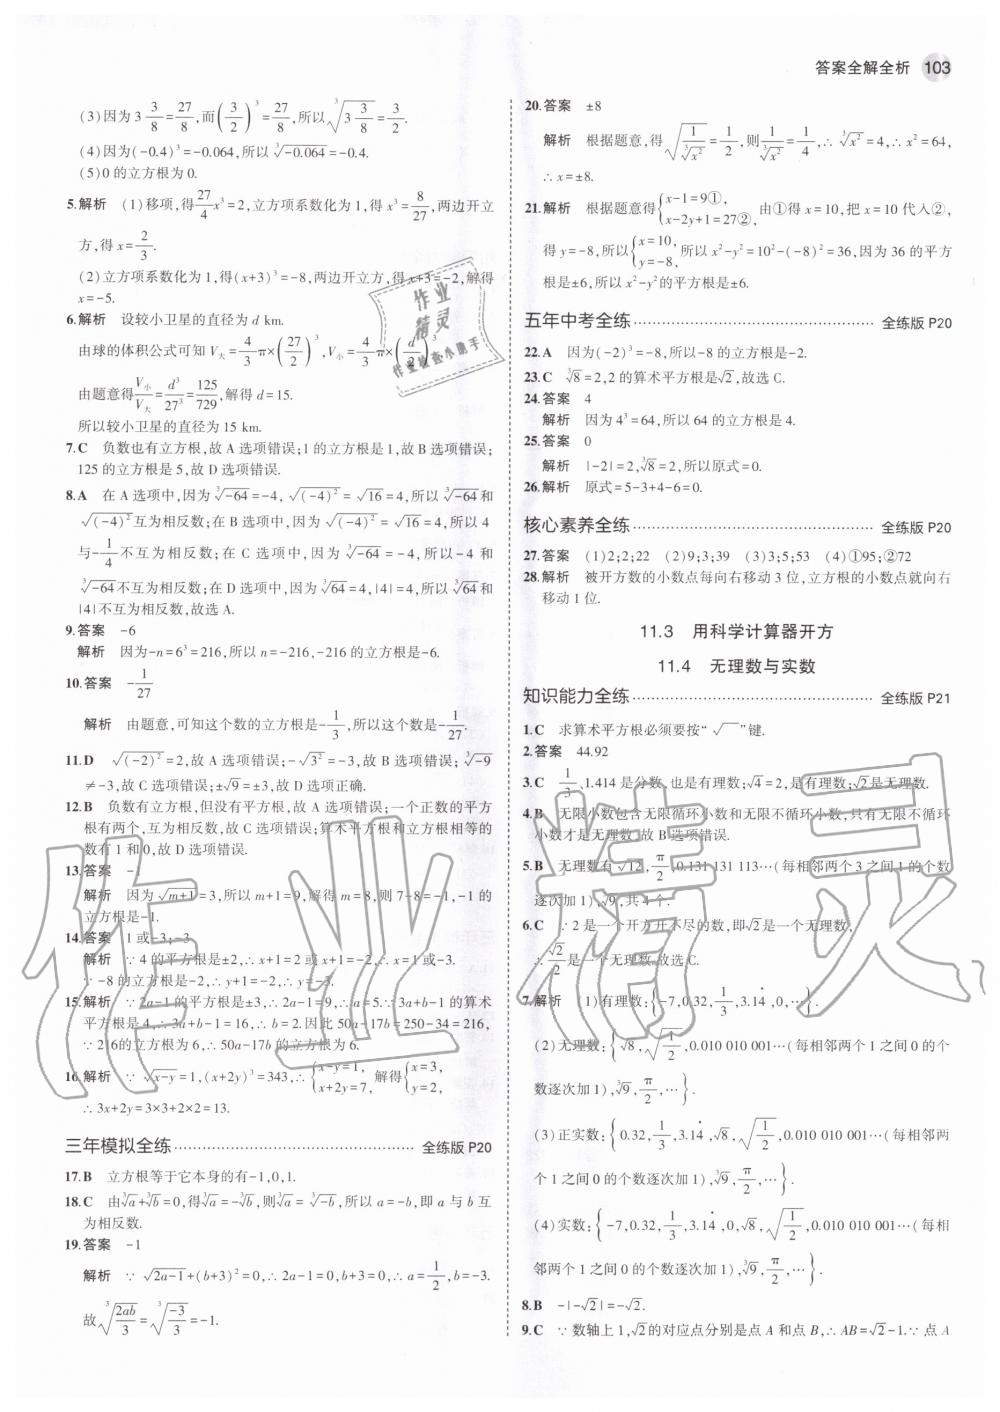 答案全解全析 103
(3)因为3 3/8=27/8,而(3/2)^3=27/8,所以∛(3 3/8)=3/2.
(4)因为(-0.4)^3=-0.064,所以∛-0.064=-0.4.
(5)0的立方根为0.
5.解析 (1)移项,得27/4 x^3=2,立方项系数化为1,得x^3=8/27,两边开立
方,得x=2/3.
(2)立方项系数化为1,得(x+3)^3=-8,两边开立方,得x+3=-2,解得
x=-5.
6.解析 设较小卫星的直径为d km.
由球的体积公式可知V大=4/3 π×(27/2)^3,V小=4/3 π×(d/2)^3
由题意得V小/V大=d^3/27^3=125/729,解得d=15.
所以较小卫星的直径为15 km.
7.C 负数也有立方根,故A选项错误;1的立方根是1,故B选项错误;
125的立方根是5,故D选项错误.
8.A 在A选项中,因为∛-64=-4,√(-4)^2=√16=4,所以∛-64和
√(-4)^2互为相反数;在B选项中,因为√(-4)^2=√16=4,所以4
与-1/4不互为相反数;在C选项中,因为∛-64=-4,所以-4和
∛-64不互为相反数;在D选项中,因为∛64=4,|4|=4,所以∛64和
|4|不互为相反数,故选A.
9.答案 -6
解析 因为-n=6^3=216,所以n=-216,-216的立方根是-6.
10.答案 -1/27
解析 由题意,可知这个数的立方根是-1/3,所以这个数是-1/27.
11.D √(-2)^2=2,故A选项错误;-√3^2=-3,故B选项错误;∛-9
≠-3,故C选项错误;±√9=±3,故D选项正确.
12.B 负数有立方根,但没有平方根,故A选项错误;一个正数的平方
根有两个,互为相反数,故C选项错误;算术平方根和立方根相等的
数有1和0,故D选项错误.
13.答案 -1
解析 因为√m+1=3,所以m+1=9,解得m=8,则7-8=-1,-1的
立方根是-1.
14.答案 1或-3;-3
解析 ∵4的平方根是±2,∴x+1=2或x+1=-2,∴x=1或-3.
∵-8的立方根是-2,∴y+1=-2,∴y=-3.
15.解析 ∵2a-1的平方根是±3,∴2a-1=9,∴a=5.∵3a+b-1的算术
平方根是4,∴3a+b-1=16,∴b=2.因此50a-17b=250-34=216,
∵216的立方根为6,∴50a-17b的立方根为6.
16.解析 ∵√x-y=1,(x+2y)^3=343,∴{x-y=1, x+2y=7, 解得{x=3, y=2,
∴3x+2y=3×3+2×2=13.
三年模拟全练 全练版 P20
17.B 立方根等于它本身的有-1,0,1.
18.C 由∛a+∛b=0,得∛a=-∛b,则∛a=∛-b,所以a=-b,即a与b互
为相反数.
19.答案 -1
解析 ∵√2a-1+(b+3)^2=0,∴2a-1=0,b+3=0,∴a=1/2,b=-3.
故∛(2ab/3)=∛(-3/3)=-1.
20.答案 ±8
解析 根据题意,得√(1/∛x^2)=1/2,则1/∛x^2=1/4,∴∛x^2=4,∴x^2=64,
∴x=±8.
21.解析 根据题意得{x-1=9①, x-2y+1=27②, 由①得x=10,把x=10代入②,
得y=-8,所以{x=10, y=-8, 所以x^2-y^2=10^2-(-8)^2=36,因为36的平方
根是±6,所以x^2-y^2的平方根是±6.
五年中考全练 全练版 P20
22.A 因为(-2)^3=-8,所以-8的立方根是-2.
23.C ∛8=2,2的算术平方根是√2,故选C.
24.答案 4
解析 因为4^3=64,所以64的立方根是4.
25.答案 0
解析 |-2|=2,∛8=2,所以原式=0.
26.解析 原式=5-3+4-6=0.
核心素养全练 全练版 P20
27.答案 (1)2;2;22 (2)9;3;39 (3)3;5;53 (4)①95;②72
28.解析 被开方数的小数点每向右移动3位,立方根的小数点就向右
移动1位.
11.3 用科学计算器开方
11.4 无理数与实数
知识能力全练 全练版 P21
1.C 求算术平方根必须要按“√ ”键.
2.答案 44.92
3.C 1/3,1.414是分数,也是有理数;√4=2,是有理数;√2是无理数.
4.B 无限小数包含无限循环小数和无限不循环小数,只有无限不循环
小数才是无理数,故B选项错误.
5.B 无理数有√12,π/2,0.131 131 113…(每相邻两个3之间1的个数
逐次加1),√9,共4个.
6.C ∵2是一个开方开不尽的数,即√2是一个无理数,
∴√2/2是一个无理数.故选C.
7.解析 (1)有理数:{-7,0.32,1/3,3.14̇,0,…}.
(2)无理数:{√8,√(1/2),0.010 010 001…(每相邻两个1之间0的个
数逐次加1),∛9,π/2,…}.
(3)正实数:{0.32,1/3,3.14̇,√8,√(1/2),0.010 010 001…(每相邻两
个1之间0的个数逐次加1),∛9,π/2,…}.
(4)实数:{-7,0.32,1/3,3.14̇,0,√8,√(1/2),0.010 010 001…(每相
邻两个1之间0的个数逐次加1),∛9,π/2,…}.
8.B -|-√2|=-√2.
9.C ∵数轴上1,√2的对应点分别是点A和点B,∴AB=√2-1.∵点A
作业精灵
作业检查小助手
作业精灵